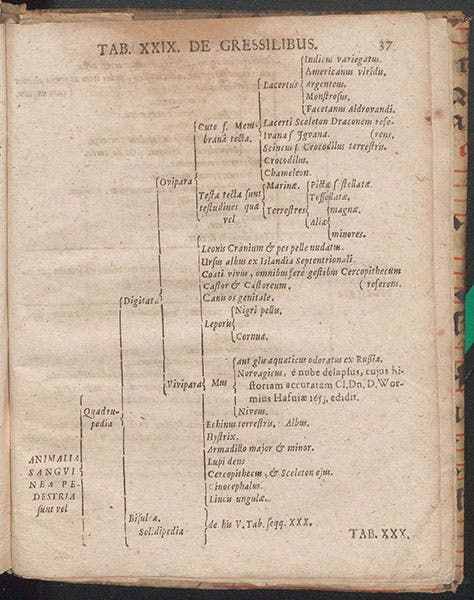 TAB. XXIX. DE GRESSILIBUS. 37
Indicus variegatus.
Americanus viridis.
Lacertus Argenteus.
Monstrosus.
Facetanus Aldrovandi.
Cute s. Mem- Lacerti Sceleton Draconem refe-
brana tecta. Ivana s Jgvana. (rens.
Scincus s. Crocodilus terrestris.
Crocodilus.
Chameleon.
Ovipara
Testa tecta sunt Marinæ. Pictæ s stellatæ.
testudines quæ Tessellatæ.
vel Terrestres magnæ.
Aliæ
minores.
Leonis Cranium & pes pelle nudatus.
Ursus albus ex Islandia Septentrionali.
Coati vivus, omnibus ferè gestibus Cercopithecum
Digitata Castor & Castoreum. (referens.
Canis os genitale.
Nigri pellis.
Leporis
Cornua.
aut glis aquaticus odoratus ex Rußia.
Vivipara Mus Norvagicus, è nube delapsus, cujus hi-
storiam accuratam Cl. Dn. D. Wor-
mius Hafniæ 1653. edidit.
Niveus.
Quadru-
pedia
Echinus terrestris. Albus.
Hystrix.
Armadillo major & minor.
ANIMALIA Lupi dens
SANGUI Cercopithecus, & Sceleton ejus.
NEA PE- Cinocephalus.
DESTRIA Lincis ungulæ.
sunt vel
Bisulca. de his V. Tab. seqq. XXX.
Solidipedia
TAB. XXX.